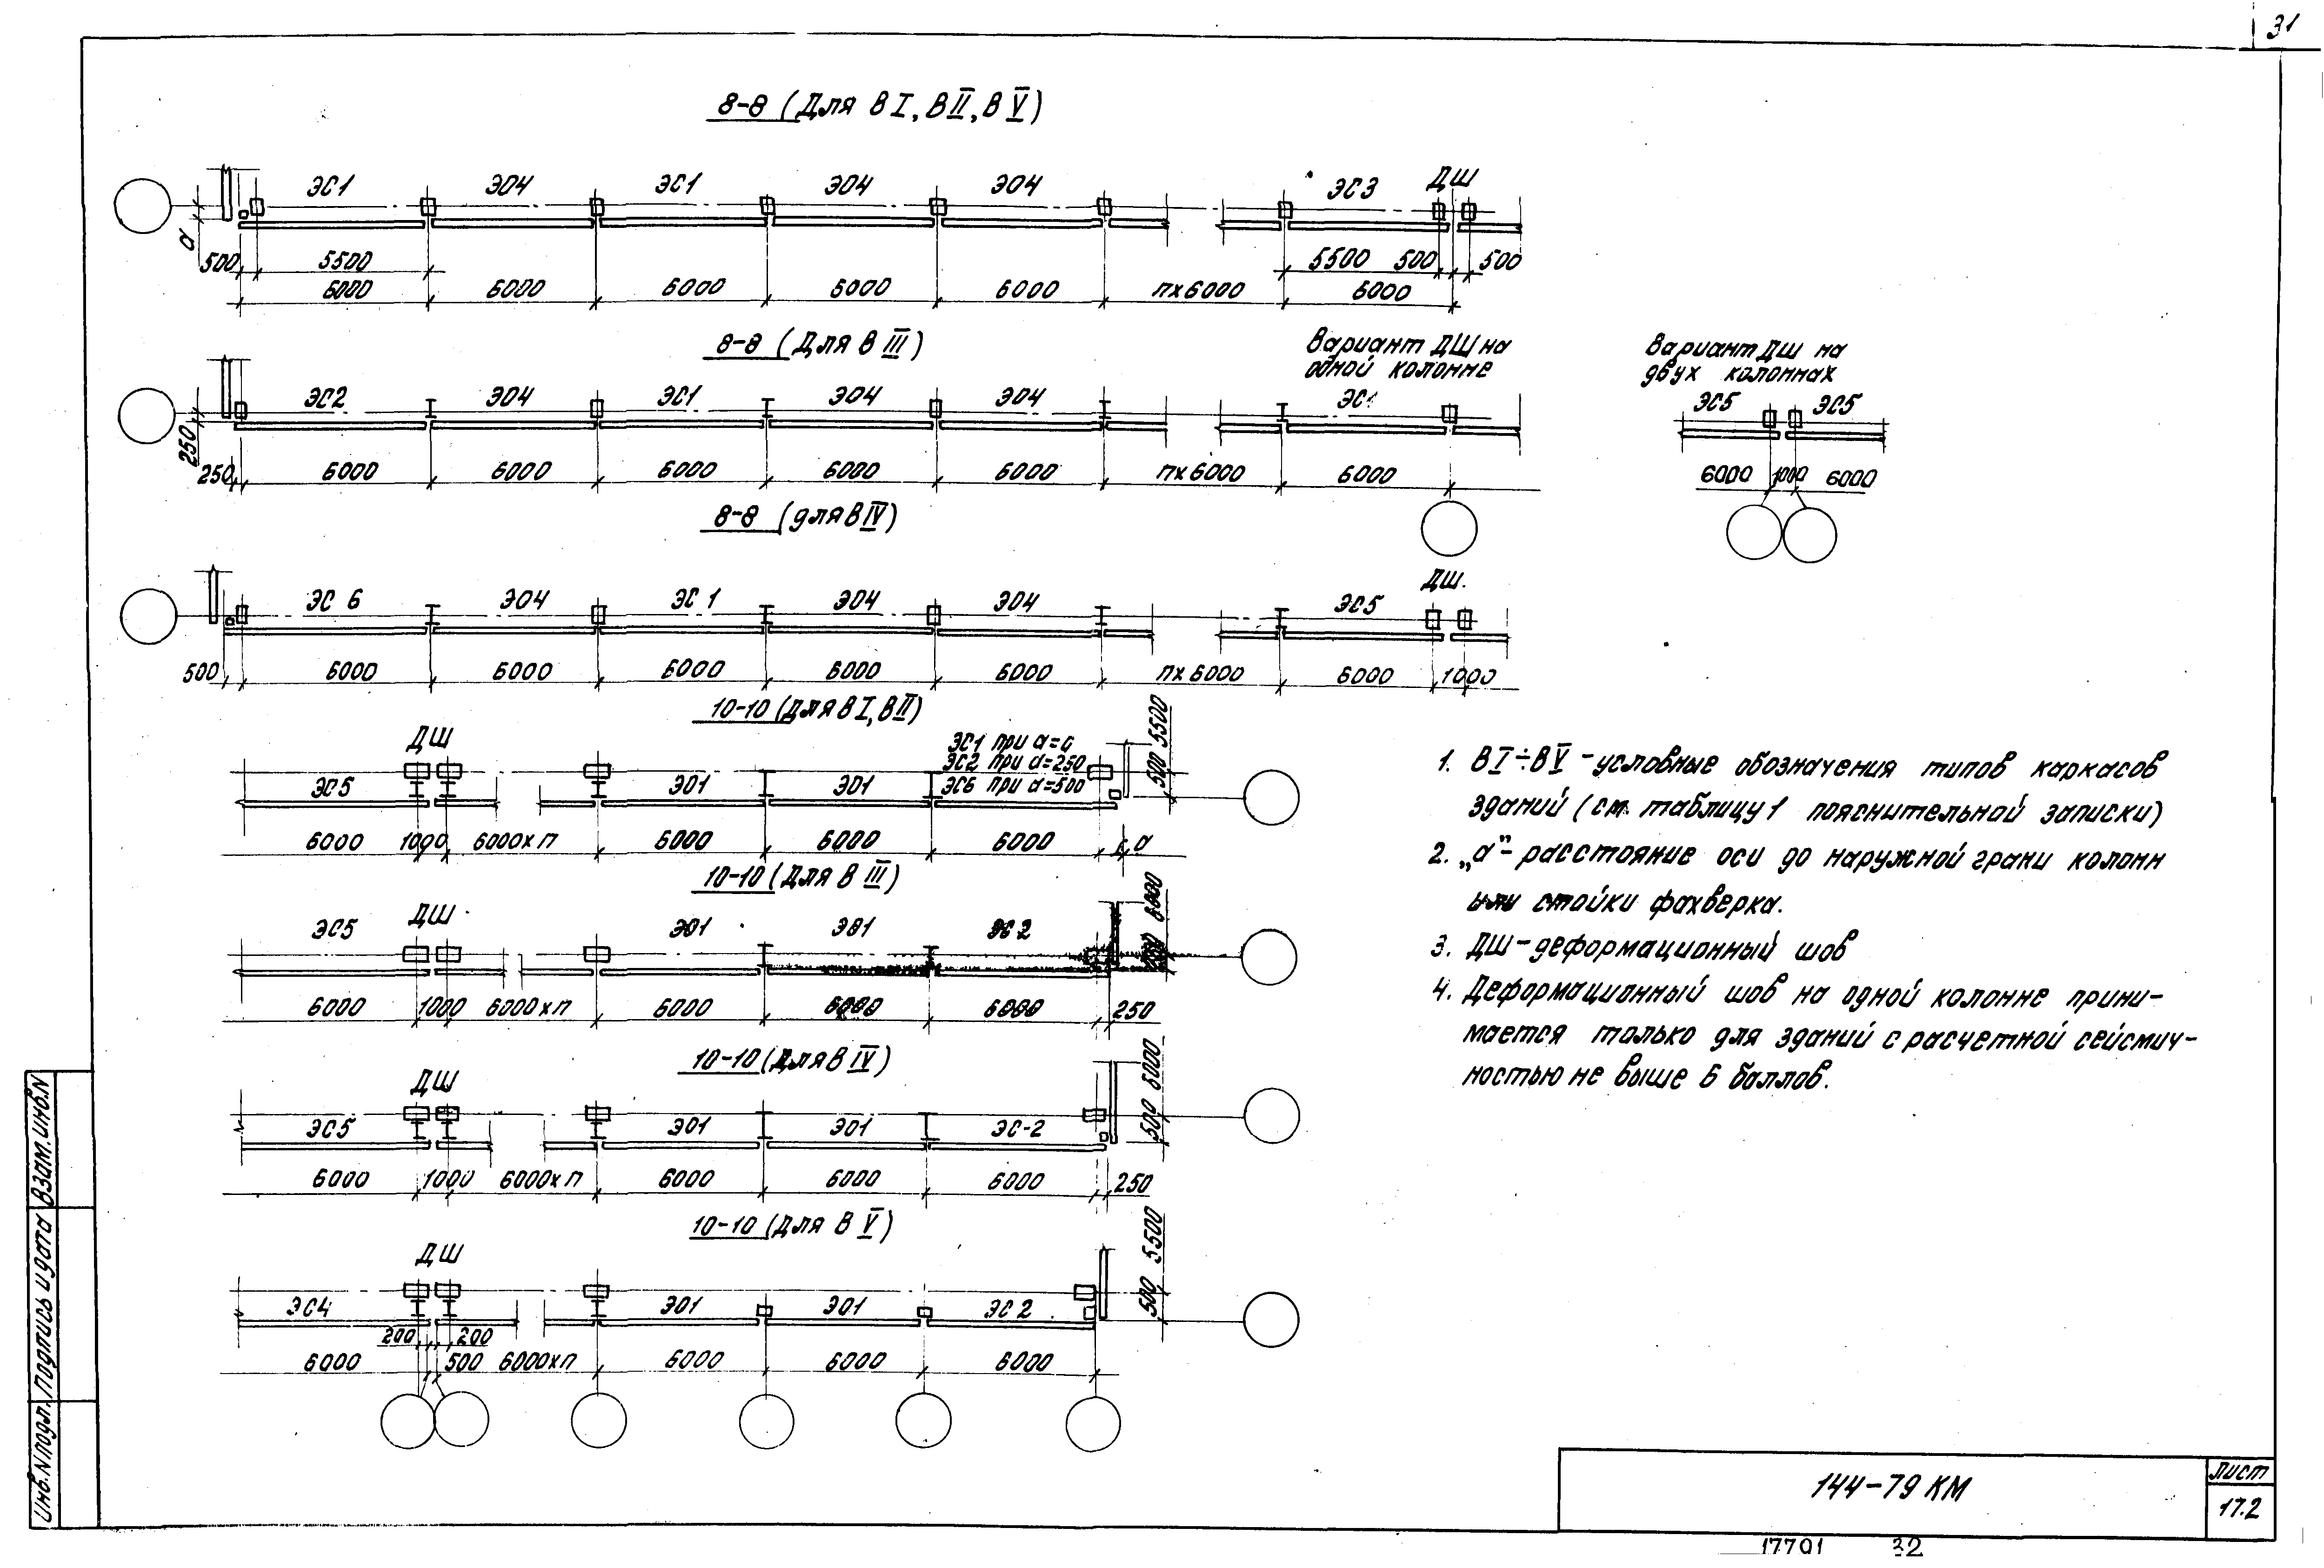 31
8-8 (Для В I, В II, В V)
ЭС1 ЭО4 ЭС1 ЭО4 ЭО4 ЭС3 ДШ
а
500 5500 5500 500 500
6000 6000 6000 6000 6000 пх6000 6000
8-8 (Для В III)
Вариант ДШ на
одной колонне
Вариант ДШ на
двух колоннах
ЭС2 ЭО4 ЭС1 ЭО4 ЭО4 ЭС1
ЭС5 ЭС5
250
250 6000 6000 6000 6000 6000 пх6000 6000
6000 1000 6000
8-8 (для В IV)
ДШ.
ЭС 6 ЭО4 ЭС 1 ЭО4 ЭО4 ЭС5
500 6000 6000 6000 6000 6000 пх6000 6000 1000
10-10 (Для В I, В II)
ДШ
ЭС1 при а=0
ЭС2 при а=250
ЭС6 при а=500
ЭС5 ЭО1 ЭО1
500 5500
6000 1000 6000хп 6000 6000 6000 а
10-10 (Для В III)
ДШ
ЭС5 ЭО1 ЭО1 ЭС2
6000
6000 1000 6000хп 6000 6000 6000 250
10-10 (Для В IV)
ДШ
ЭС5 ЭО1 ЭО1 ЭС-2
500 6000
6000 1000 6000хп 6000 6000 6000 250
10-10 (Для В V)
ДШ
ЭС4 ЭО1 ЭО1 ЭС 2
500 5500
200 200
6000 500 6000хп 6000 6000 6000
1. В I÷В V -условные обозначения типов каркасов
зданий (см. таблицу 1 пояснительной записки)
2. „а"- расстояние оси до наружной грани колонн
или стойки фахверка.
3. ДШ-деформационный шов
4. Деформационный шов на одной колонне прини-
мается только для зданий с расчетной сейсмич-
ностью не выше 6 баллов.
Инв.N подл. Подпись и дата Взам.инв.N
144-79 КМ
Лист
17.2
17701 32